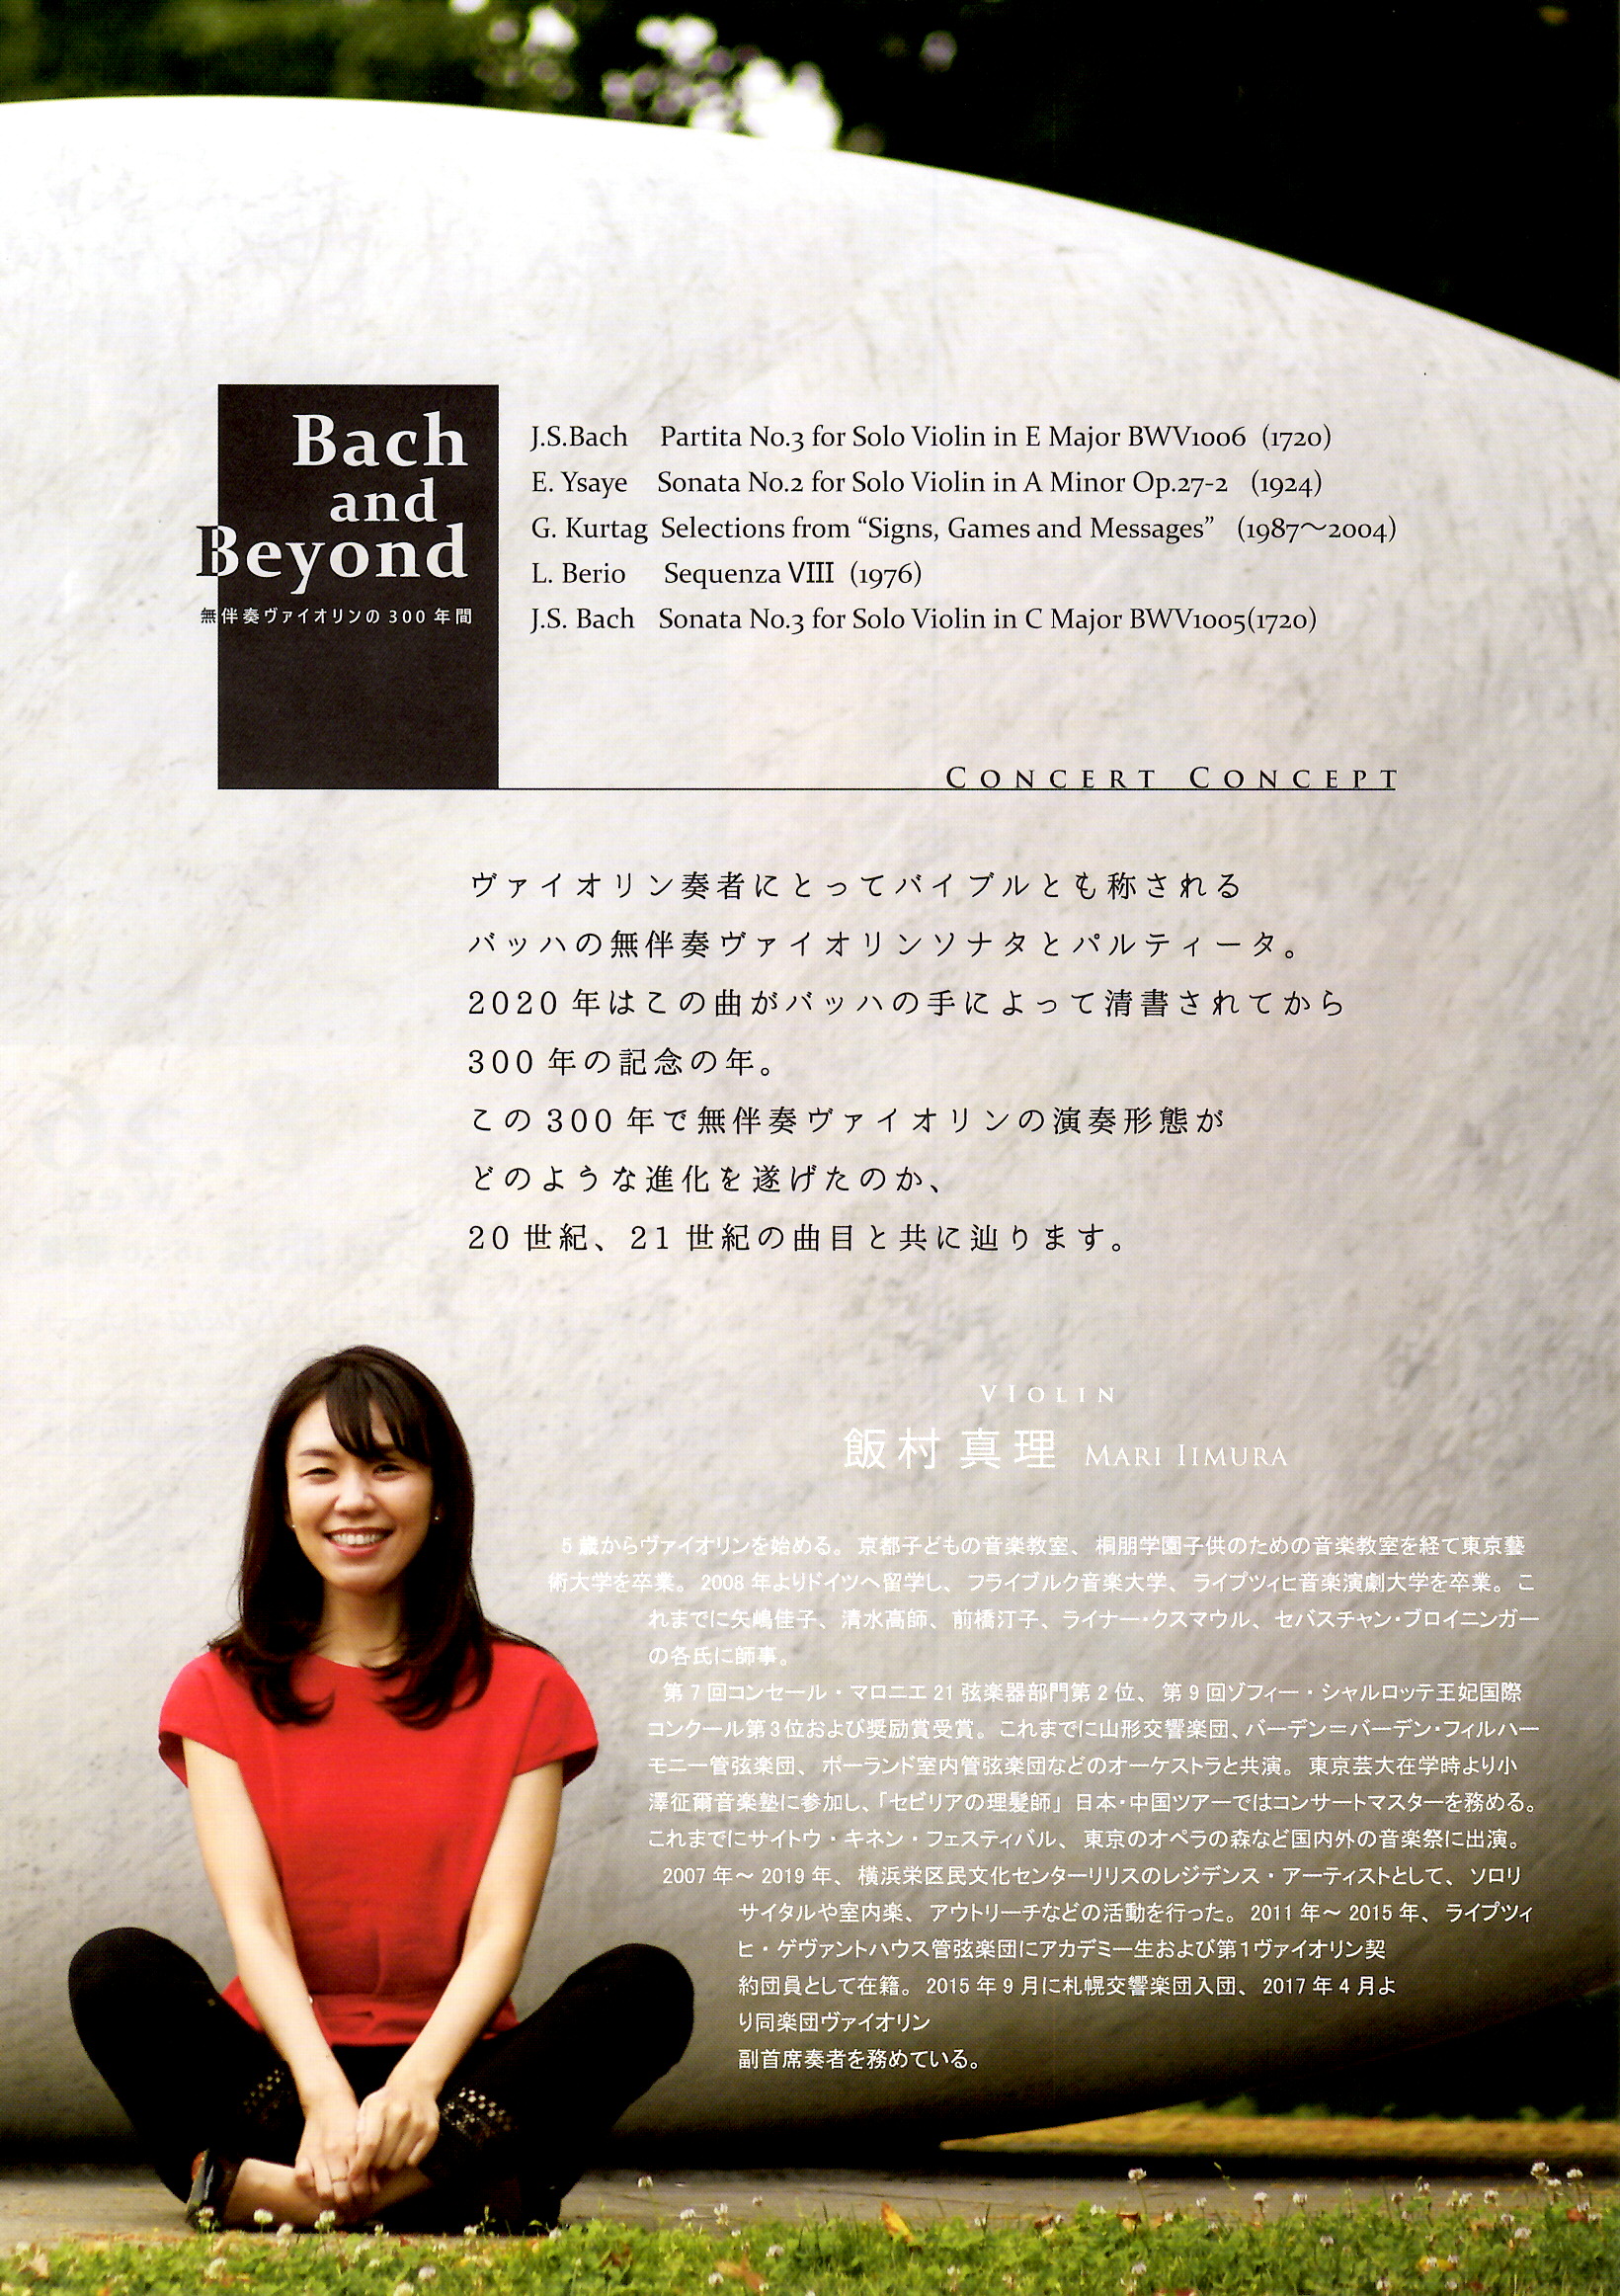 Bach
and
Beyond
無伴奏ヴァイオリンの 300 年間
J.S.Bach Partita No.3 for Solo Violin in E Major BWV1006 (1720)
E. Ysaye Sonata No.2 for Solo Violin in A Minor Op.27-2 (1924)
G. Kurtag Selections from “Signs, Games and Messages” (1987〜2004)
L. Berio Sequenza VIII (1976)
J.S. Bach Sonata No.3 for Solo Violin in C Major BWV1005(1720)
CONCERT CONCEPT
ヴァイオリン奏者にとってバイブルとも称される
バッハの無伴奏ヴァイオリンソナタとパルティータ。
2020 年はこの曲がバッハの手によって清書されてから
300 年の記念の年。
この 300 年で無伴奏ヴァイオリンの演奏形態が
どのような進化を遂げたのか、
20 世紀、21 世紀の曲目と共に辿ります。
VIOLIN
飯村 真理 MARI IIMURA
5 歳からヴァイオリンを始める。京都子どもの音楽教室、桐朋学園子供のための音楽教室を経て東京藝
術大学を卒業。2008 年よりドイツへ留学し、フライブルク音楽大学、ライプツィヒ音楽演劇大学を卒業。こ
れまでに矢嶋佳子、清水高師、前橋汀子、ライナー・クスマウル、セバスチャン・ブロイニンガー
の各氏に師事。
第 7 回コンセール・マロニエ 21 弦楽器部門第 2 位、第 9 回ゾフィー・シャルロッテ王妃国際
コンクール第3位および奨励賞受賞。これまでに山形交響楽団、バーデン＝バーデン・フィルハー
モニー管弦楽団、ポーランド室内管弦楽団などのオーケストラと共演。東京芸大在学時より小
澤征爾音楽塾に参加し、「セビリアの理髪師」日本・中国ツアーではコンサートマスターを務める。
これまでにサイトウ・キネン・フェスティバル、東京のオペラの森など国内外の音楽祭に出演。
2007 年〜 2019 年、横浜栄区民文化センターリリスのレジデンス・アーティストとして、ソロリ
サイタルや室内楽、アウトリーチなどの活動を行った。2011 年〜 2015 年、ライプツィ
ヒ・ゲヴァントハウス管弦楽団にアカデミー生および第1ヴァイオリン契
約団員として在籍。2015 年 9 月に札幌交響楽団入団、2017 年 4 月よ
り同楽団ヴァイオリン
副首席奏者を務めている。